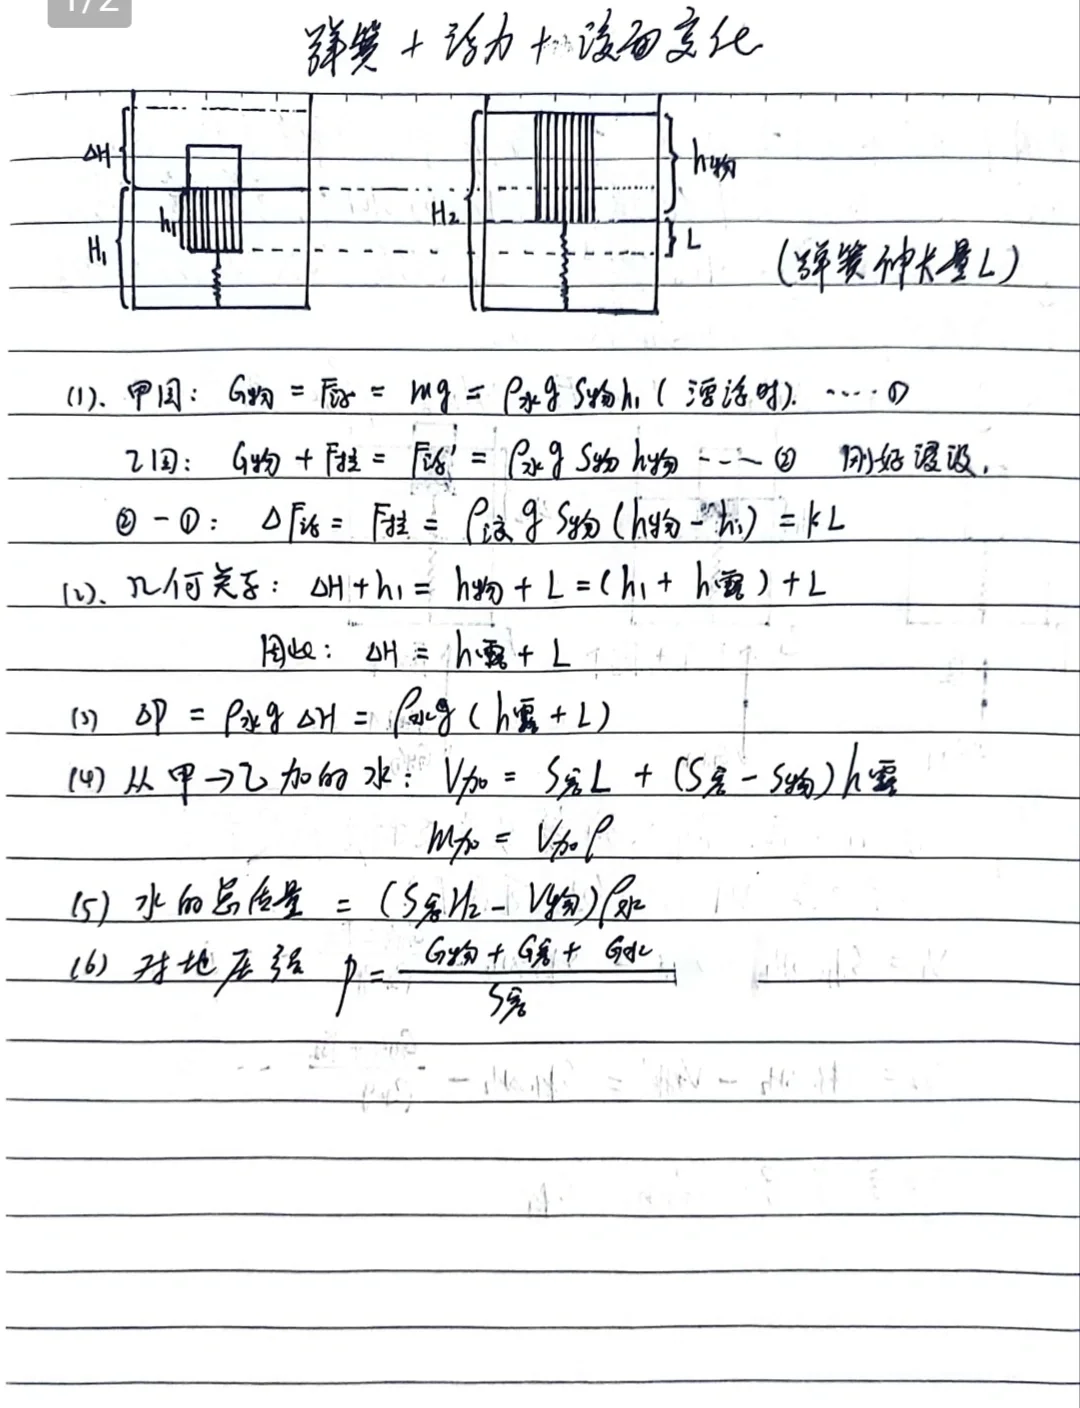 1/2
弹簧+浮力+液面变化
ΔH
h₁
H₁
H₂
h物
L
(弹簧伸长量L)
(1). 甲图: G物 = F浮 = mg = ρ水g S物h₁ (漂浮时). ····①
乙图: G物 + F拉 = F浮' = ρ水g S物 h物 ---- ② 刚好浸没.
② - ①: ΔF浮 = F拉 = ρ液g S物(h物 - h₁) = kL
(2). 几何关系: ΔH + h₁ = h物 + L = (h₁ + h露) + L
因此: ΔH = h露 + L
(3) ΔP = ρ水g ΔH = ρ水g (h露 + L)
(4) 从甲→乙加的水: V加 = S容L + (S容 - S物)h露
m加 = V加ρ
(5) 水的总质量 = (S容H₂ - V物)ρ水
(6) 对地压强 p = (G物 + G容 + G水) / S容